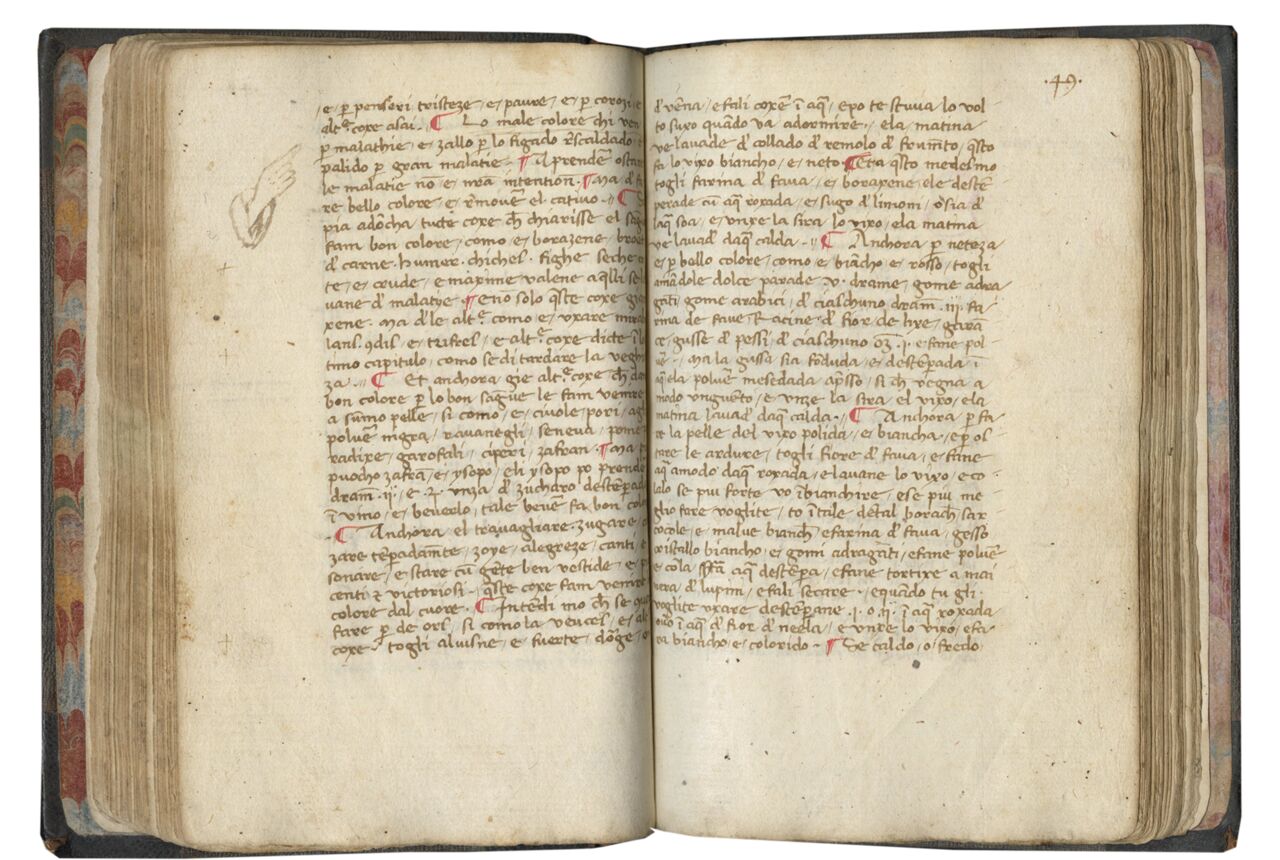 e p̄ penseri tristeze e paure e p̄ corozi e
alt.ͤ coxe asai. ¶ Lo male colore chi ven
p̄ malathie e zallo p̄ lo figado rescaldado
palido p̄ gran malatie. ¶ A prende ostare
le malatie nō e mr̄a intention̄. ¶ Ma d' fa
re bello colore e removē el cativo. ¶
pia adōcha tucte coxe ch̄ chiarisse el
fam bon colore como e borazene
d' carne humer. chichel. fighe seche
te e crude e maxime valene a q̄lli
vane d' malathie ¶ e nō solo q̄ste coxe
xene. Ma d' le alt.ͤ como e uxare
e trifers e alt.ͤ coxe dicte ī lo
timo capitulo como se di tardare la vegha
za. ¶ Et anchora gie alt.ͤ coxe ch̄
bon colore p̄ lo bon sangue le fam venire
a sūmo pelle si como e civole pori
polvē nigra ravanegli seneva
radixe garofali ciperi zafran ¶ Ma
puocho zafrā e ysopo eli ysopo po prende
dram̄. ii. e unza d' zucharo destēperad
ī vino e beverlo tale bevē fa bon colo
¶ Anchora el travagliare zugare
zare tēperadamēte zoye alegreze canti e
sonare e stare cū gēte ben vestide e
centi & victoriosi. q̄ste coxe fam venire
colore dal cuore. ¶ Intendi mo ch̄ se
fare p̄ de ors si como la veucel e
coxe. togli alvisne e fuerte
·49·
d' vena e fali coxē ī aq̄ e po te stuva lo vol
to suxo quādo va adormire. ela matina
ve lavade d' collado d' remolo d' frumēto q̄sto
fa lo vixo biancho e neto ¶ Et a q̄sto medesmo
togli farina d' fava e boraxene ele destē
perade cū aq̄ roxada e sugo d' limoni o sia d'
laq̄ soa e unxe la sira lo vixo ela matina
ve lavad' daq̄ calda. ¶ Anchora p̄ neteza
e p̄ bello colore como e biācho e rosso togli
amādole dolce parade .v. drame gome adra
gāti gome arabici d' ciaschuno dram̄. iii. fa
rina de fave Racine d' fior de lixe
ce gusse d' pessi d' ciaschuno oz̄ .i. e fane pol
vē. Ma la gussa sia fōduda e destēperada ī
aq̄ ela polvē mesedada ap̄sso si ch̄ vegna a
modo unguēto e unze la sira el vixo ela
matina lavad' daq̄ calda. ¶ Anchora p̄ fa
re la pelle del vixo polida e biancha e p̄ os
tare le ardure togli fiore d' fava e fane
aq̄ amodo daq̄ roxada e lavane lo vixo e co
lalo se piu forte vo ībianchire e se piu me
glio fare voglite to ītale dētal borach̄ sar
cocole e malve bianch̄ e farina d' fava gesso
cristallo biancho e gomi adragāti e fane polvē
e cola aq̄ destēpera e fane tortire a mai
nera d' lupini e fali secare. e quando tu gli
voglite uxare destēperane .i. o .ii. ī aq̄ roxada
ovo ī aq̄ d' fior d' neela e unxe lo vixo e fa
ra biancho e colorido. ¶ Se caldo o fredo